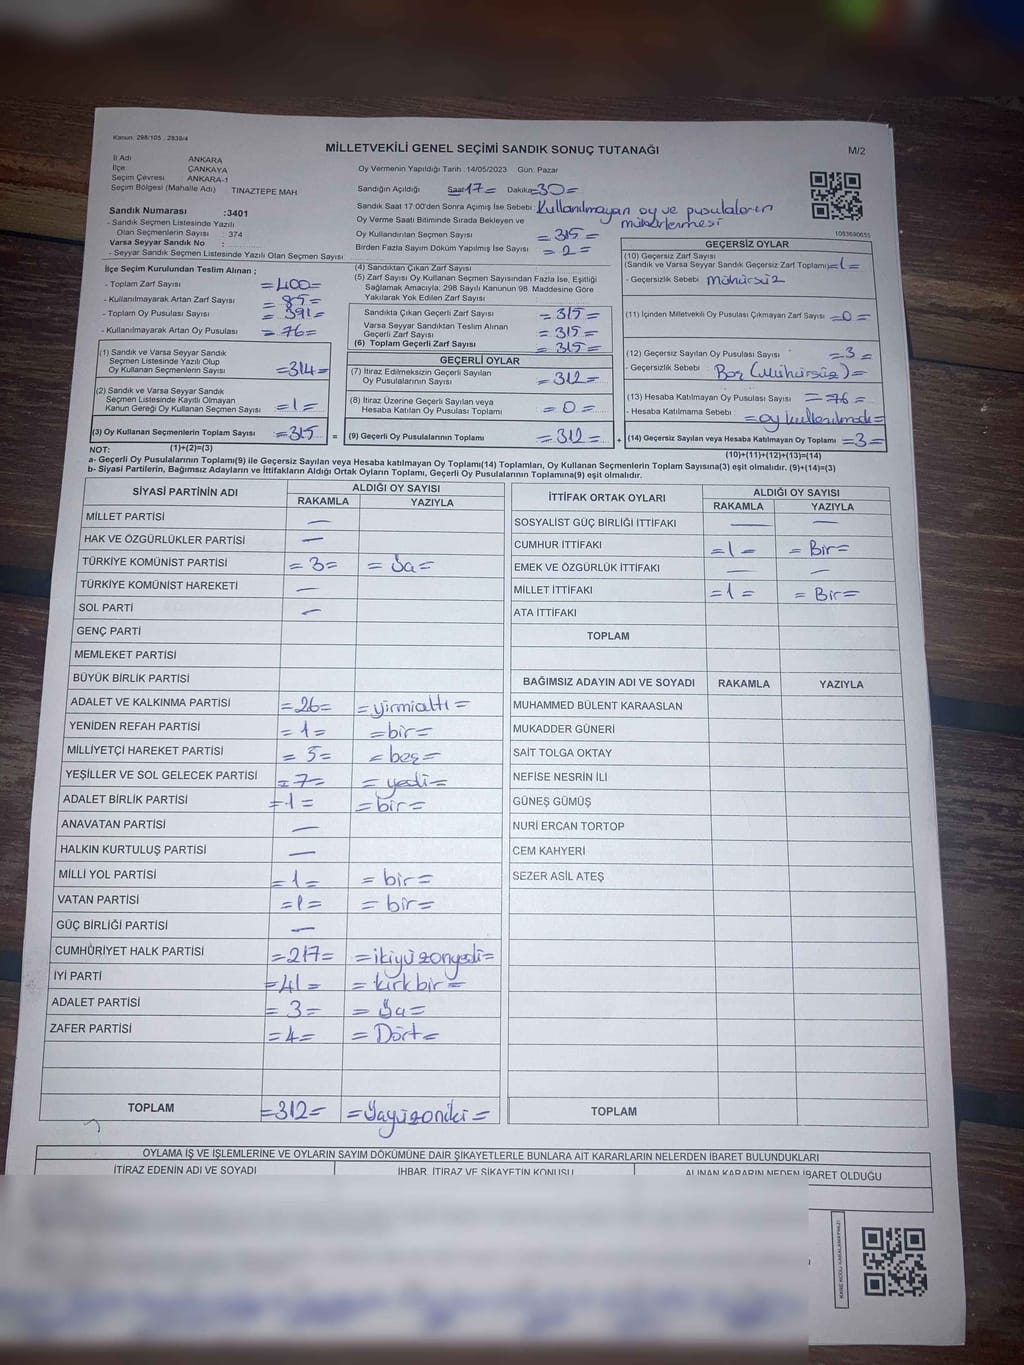 Kanun: 298/105 , 2839/4
MİLLETVEKİLİ GENEL SEÇİMİ SANDIK SONUÇ TUTANAĞI
M/2
İl Adı ANKARA
İlçe ÇANKAYA
Seçim Çevresi ANKARA-1
Seçim Bölgesi (Mahalle Adı) TINAZTEPE MAH
Sandık Numarası :3401
- Sandık Seçmen Listesinde Yazılı
Olan Seçmenlerin Sayısı : 374
Varsa Seyyar Sandık No :
- Seyyar Sandık Seçmen Listesinde Yazılı Olan Seçmen Sayısı
Oy Vermenin Yapıldığı Tarih :14/05/2023 Gün: Pazar
Sandığın Açıldığı Saat 17= Dakika=30=
Sandık Saat 17.00'den Sonra Açımış İse Sebebi Kullanılmayan oy ve pusulaların
mühürlenmesi
Oy Verme Saati Bitiminde Sırada Bekleyen ve
Oy Kullandırılan Seçmen Sayısı =315=
Birden Fazla Sayım Döküm Yapılmış İse Sayısı =2=
1083690655
İlçe Seçim Kurulundan Teslim Alınan ;
- Toplam Zarf Sayısı =400=
- Kullanılmayarak Artan Zarf Sayısı =85=
- Toplam Oy Pusulası Sayısı =391=
- Kullanılmayarak Artan Oy Pusulası =76=
(1) Sandık ve Varsa Seyyar Sandık
Seçmen Listesinde Yazılı Olup
Oy Kullanan Seçmenlerin Sayısı =314=
(2) Sandık ve Varsa Seyyar Sandık
Seçmen Listesinde Kayıtlı Olmayan
Kanun Gereği Oy Kullanan Seçmen Sayısı =1=
(3) Oy Kullanan Seçmenlerin Toplam Sayısı =315
(4) Sandıktan Çıkan Zarf Sayısı
(5) Zarf Sayısı Oy Kullanan Seçmen Sayısından Fazla İse, Eşitliği
Sağlamak Amacıyla, 298 Sayılı Kanunun 98. Maddesine Göre
Yakılarak Yok Edilen Zarf Sayısı
Sandıkta Çıkan Geçerli Zarf Sayısı =315=
Varsa Seyyar Sandıktan Teslim Alınan
Geçerli Zarf Sayısı =315=
(6) Toplam Geçerli Zarf Sayısı =315=
GEÇERLİ OYLAR
(7) İtiraz Edilmeksizin Geçerli Sayılan
Oy Pusulalarının Sayısı =312=
(8) İtiraz Üzerine Geçerli Sayılan veya
Hesaba Katılan Oy Pusulası Toplamı =0=
= (9) Geçerli Oy Pusulalarının Toplamı =312=
GEÇERSİZ OYLAR
(10) Geçersiz Zarf Sayısı
(Sandık ve Varsa Seyyar Sandık Geçersiz Zarf Toplamı)=1=
- Geçersizlik Sebebi Mühürsüz
(11) İçinden Milletvekili Oy Pusulası Çıkmayan Zarf Sayısı =0=
(12) Geçersiz Sayılan Oy Pusulası Sayısı =3=
- Geçersizlik Sebebi Boş (Mühürsüz)=
(13) Hesaba Katılmayan Oy Pusulası Sayısı =76=
- Hesaba Katılmama Sebebi =oy kullanılmadı=
+ (14) Geçersiz Sayılan veya Hesaba Katılmayan Oy Toplamı =3=
NOT: (1)+(2)=(3)
(10)+(11)+(12)+(13)=(14)
a- Geçerli Oy Pusulalarının Toplamı(9) ile Geçersiz Sayılan veya Hesaba katılmayan Oy Toplamı(14) Toplamları, Oy Kullanan Seçmenlerin Toplam Sayısına(3) eşit olmalıdır. (9)+(14)=(3)
b- Siyasi Partilerin, Bağımsız Adayların ve İttifakların Aldığı Ortak Oyların Toplamı, Geçerli Oy Pusulalarının Toplamına(9) eşit olmalıdır.
SİYASİ PARTİNİN ADI ALDIĞI OY SAYISI
RAKAMLA YAZIYLA
MİLLET PARTİSİ —
HAK VE ÖZGÜRLÜKLER PARTİSİ —
TÜRKİYE KOMÜNİST PARTİSİ =3= =Üç=
TÜRKİYE KOMÜNİST HAREKETİ —
SOL PARTİ —
GENÇ PARTİ
MEMLEKET PARTİSİ
BÜYÜK BİRLİK PARTİSİ
ADALET VE KALKINMA PARTİSİ =26= =yirmialtı=
YENİDEN REFAH PARTİSİ =1= =bir=
MİLLİYETÇİ HAREKET PARTİSİ =5= =beş=
YEŞİLLER VE SOL GELECEK PARTİSİ =7= =yedi=
ADALET BİRLİK PARTİSİ =1= =bir=
ANAVATAN PARTİSİ —
HALKIN KURTULUŞ PARTİSİ —
MİLLİ YOL PARTİSİ =1= =bir=
VATAN PARTİSİ =1= =bir=
GÜÇ BİRLİĞİ PARTİSİ —
CUMHURİYET HALK PARTİSİ =217= =ikiyüzonyedi=
İYİ PARTİ =41= =kırkbir=
ADALET PARTİSİ =3= =Üç=
ZAFER PARTİSİ =4= =Dört=
TOPLAM =312= =Üçyüzoniki=
İTTİFAK ORTAK OYLARI ALDIĞI OY SAYISI
RAKAMLA YAZIYLA
SOSYALİST GÜÇ BİRLİĞİ İTTİFAKI — —
CUMHUR İTTİFAKI =1= =Bir=
EMEK VE ÖZGÜRLÜK İTTİFAKI — —
MİLLET İTTİFAKI =1= =Bir=
ATA İTTİFAKI
TOPLAM
BAĞIMSIZ ADAYIN ADI VE SOYADI RAKAMLA YAZIYLA
MUHAMMED BÜLENT KARAASLAN
MUKADDER GÜNERİ
SAİT TOLGA OKTAY
NEFİSE NESRİN İLİ
GÜNEŞ GÜMÜŞ
NURİ ERCAN TORTOP
CEM KAHYERİ
SEZER ASİL ATEŞ
TOPLAM
OYLAMA İŞ VE İŞLEMLERİNE VE OYLARIN SAYIM DÖKÜMÜNE DAİR ŞİKAYETLERLE BUNLARA AİT KARARLARIN NELERDEN İBARET BULUNDUKLARI
İTİRAZ EDENİN ADI VE SOYADI İHBAR, İTİRAZ VE ŞİKAYETİN KONUSU ALINAN KARARIN NEDEN İBARET OLDUĞU